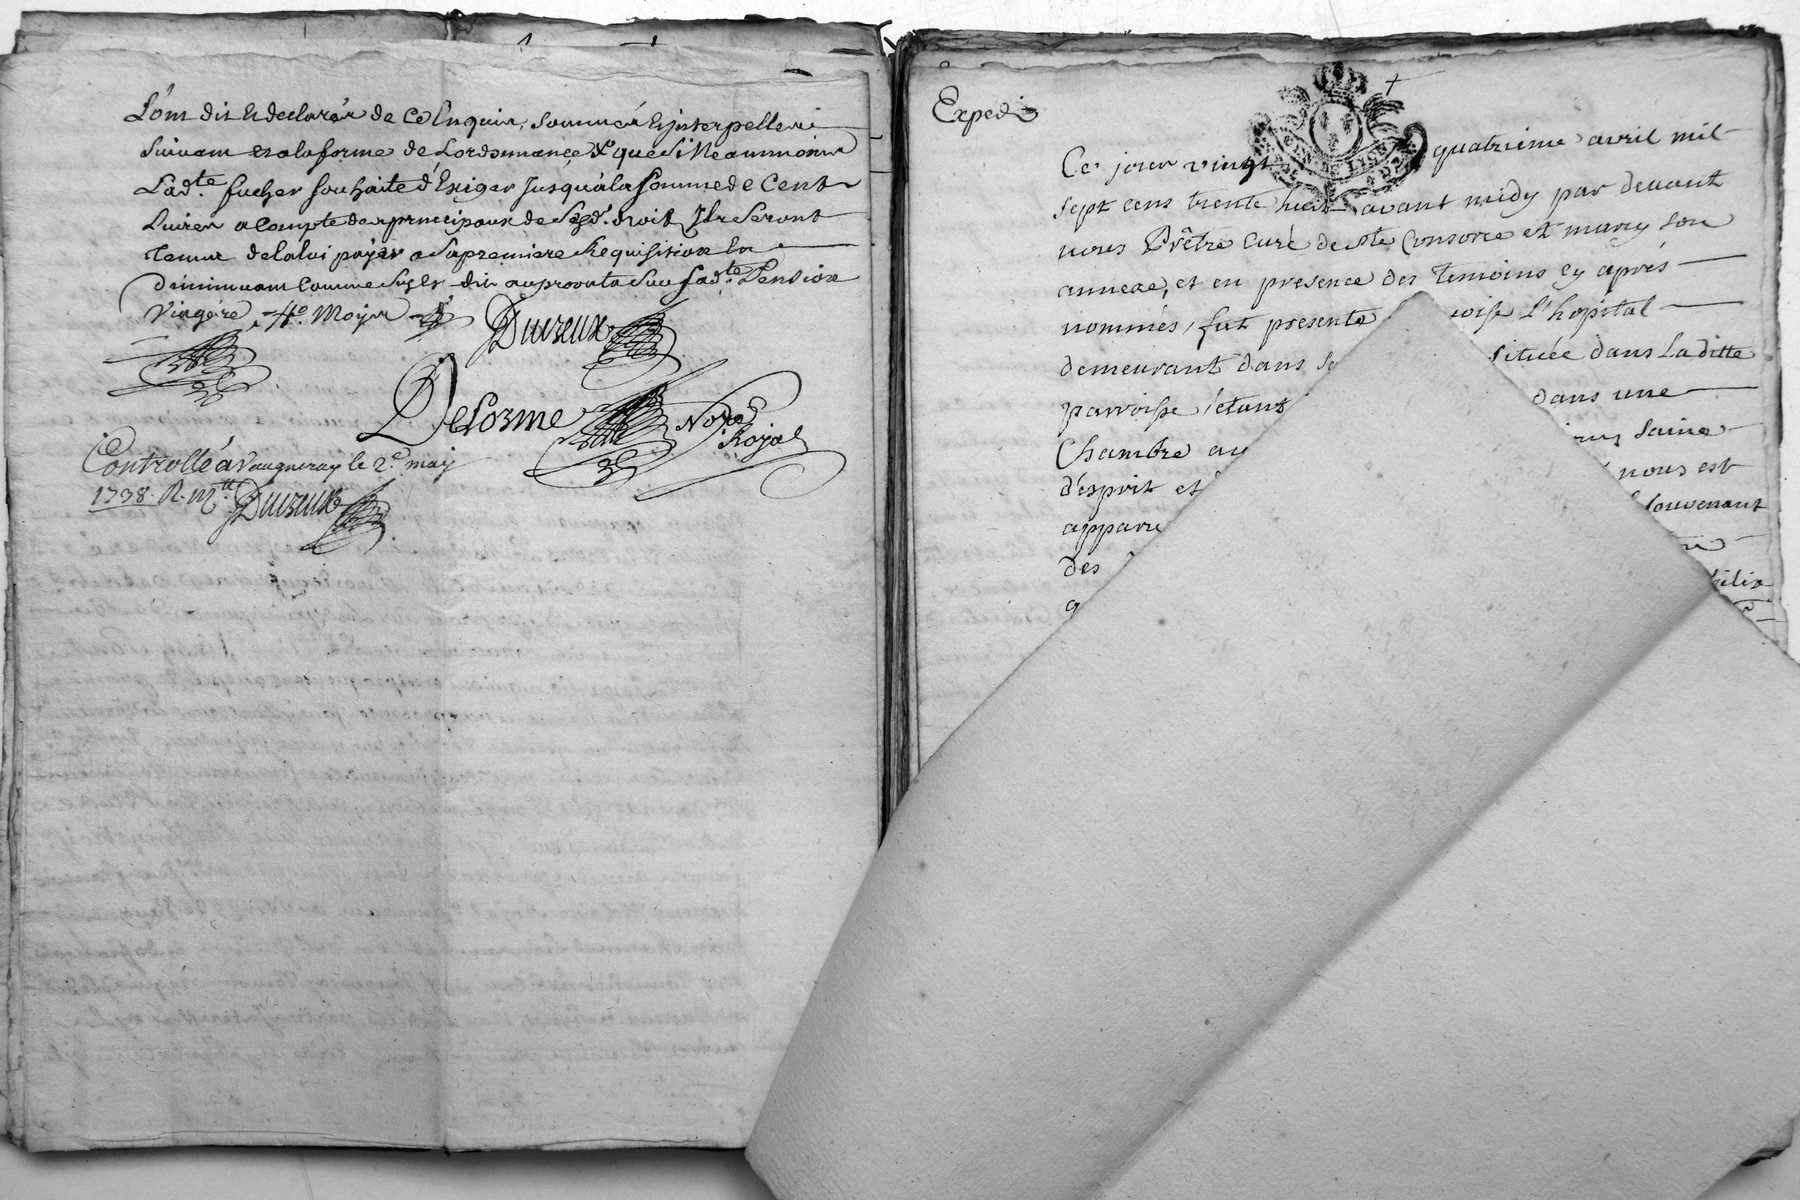 L'ont dit et declaré de ce Enquis, sommés et jnterpellés
suivant et a la forme de Lordonnance & que si Neanmoins
Ladte fucher souhaite d'Exiger Jusqu'à la somme de Cent
Livres a compte des principaux de Sesd. droit Jls Seront
tenus de la lui payer a Sa premiere Requisition En
diminuant comme Susest dit au prorata Sur sadte Pension
Viagére, Moyen
Duvreux
Delorme Notre Royal
Controllé à Vaugneray le 2e. may
1738. R. Duvreux
Expedié
Ce jour vingt quatrieme avril mil
sept cens trente huit avant midy par devant
nous Prêtre Curé de ste Consorce et marcy son
annexe, et en presence des temoins cy aprés
nommés, fut presente L'hopital
demeurant dans située dans La ditte
parroisse étant dans une
Chambre saine
d'esprit et nous est
apparu souvenant
des